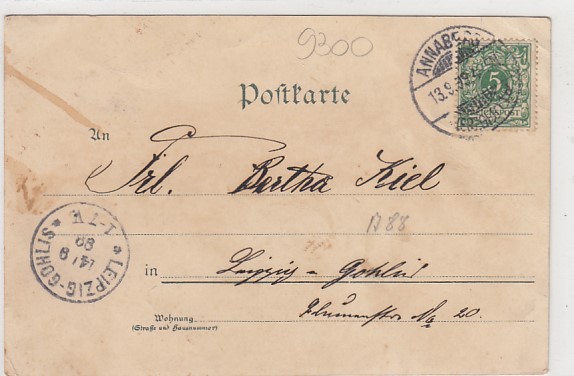 9300
ANNABERG
13.9.
5
REICHSPOST
Postkarte
An
Frl. Bertha Kiel
1788
in Leipzig-Gohlis
Wohnung
(Straße und Hausnummer)
Blumenstr No 20.
* LEIPZIG-GOHLIS *
14/9